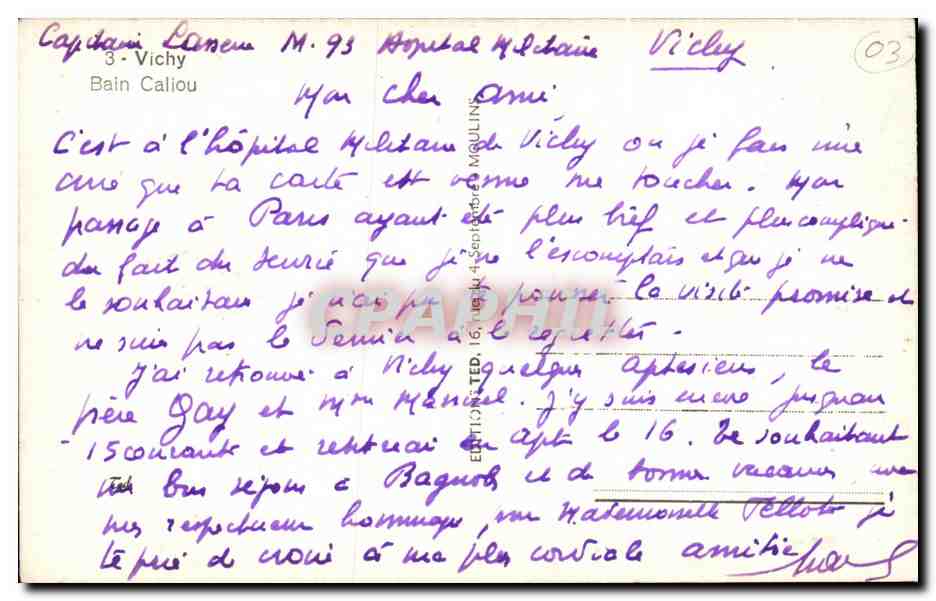 Capitaine Lasserre M. 93 Hopital Militaire Vichy
03
3 - Vichy
Bain Caliou
Mon cher ami
C'est à l'hôpital Militaire de Vichy ou je fais une
cure que ta carte est venue me toucher. Mon
passage à Paris ayant été plus bref et plus compliqué
du fait du que je ne l'escomptais et que je ne
le souhaitais je n'ai pu pousser la visite promise et
ne suis pas le dernier à le regretter.
J'ai retrouvé à Vichy quelques aptésiens, le
père Gay et Mme . J'y suis encore jusqu'au
15 courant et rentrerai en Apt le 16. Te souhaitant
un bon séjour à Bagnols et de bonnes vacances avec
mes respectueux hommages pour Mademoiselle je
te prie de croire à ma plus cordiale amitié
EDITIONS TED, 16, rue du 4-Septembre - MOULINS
CPAPHIL